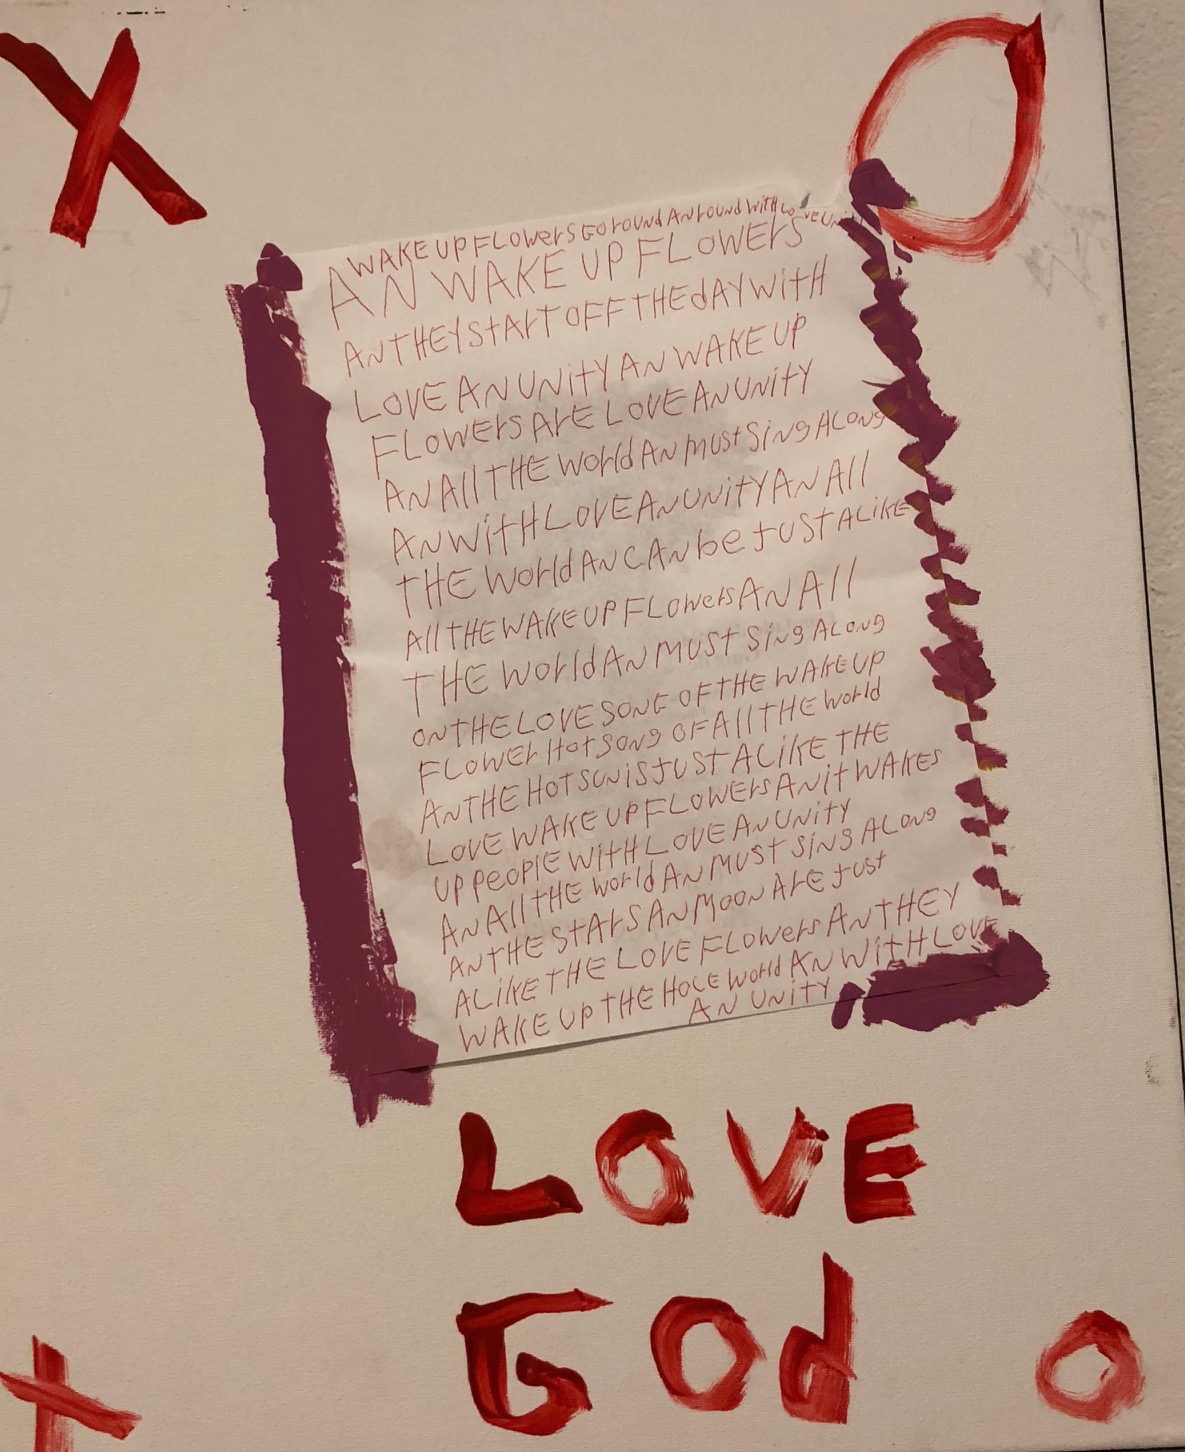 X O
WAKE UP FLOWErS GO rOUND AN rOUND WITH LOVE UN
AN WAKE UP FLOWErS
AN THEY StArT OFF THE dAY WITH
LOVE AN UNITY AN WAKE UP
FLOWErS ArE LOVE AN UNITY
AN All THE World AN MUSt SiNg ALONg
AN WITH LOVE AN UNITY AN All
THE World AN CAN be JUST ALIKE
All THE WAKE UP FLOWErS AN All
THE World AN MUST SiNg ALONg
ON THE LOVE SONG OF THE WAKE UP
FLOWEr HOt SONg OF All THE World
AN THE HOT SUN iS JUST ALIKE THE
LOVE WAKE UP FLOWErS AN iT WAKES
UP PEOPLE WITH LOVE AN UNITY
AN All THE World AN MUST SiNg ALONg
AN THE STArS AN MOON ArE JUSt
ALIKE THE LOVE FLOWErS AN THEY
WAKE UP THE HOLE World AN WITH LOVE
AN UNITY
LOVE
GOd
X O